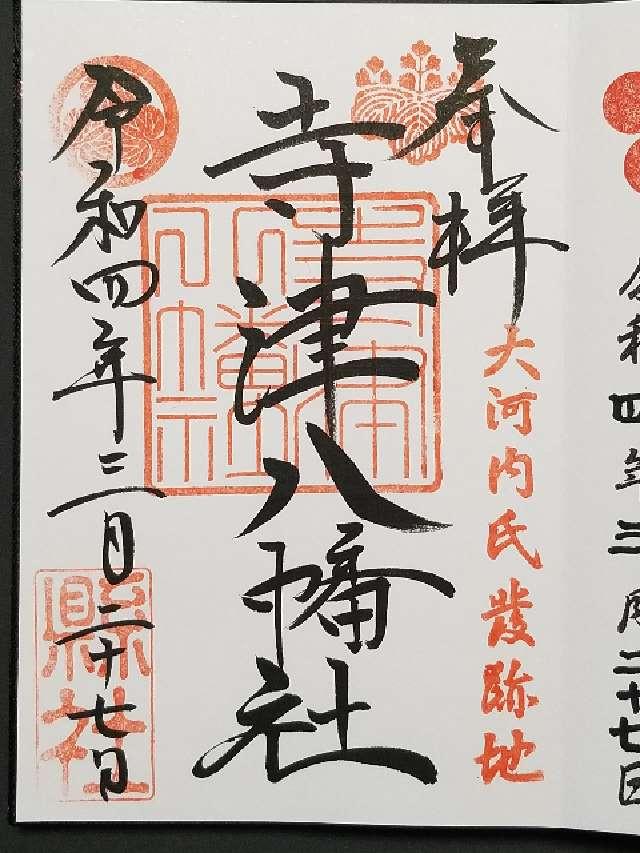 奉拝
大河内氏發跡地
寺津八幡社
令和四年三月二十七日
縣社
令和四年三月二十七日